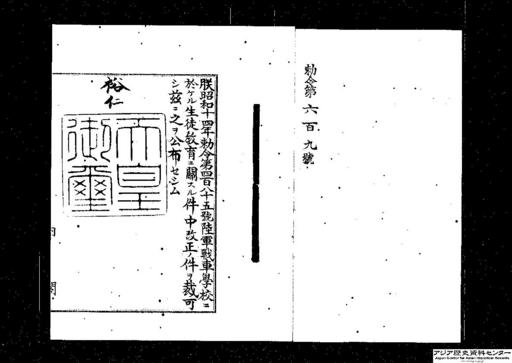 勅令第六百九號
朕昭和十四年勅令第四百八十五號陸軍戰車學校ニ
於ケル生徒敎育ニ關スル件中改正ノ件ヲ裁可
シ茲ニ之ヲ公布セシム
裕仁
天皇
御璽
内閣
アジア歴史資料センター
Japan Center for Asian Historical Records